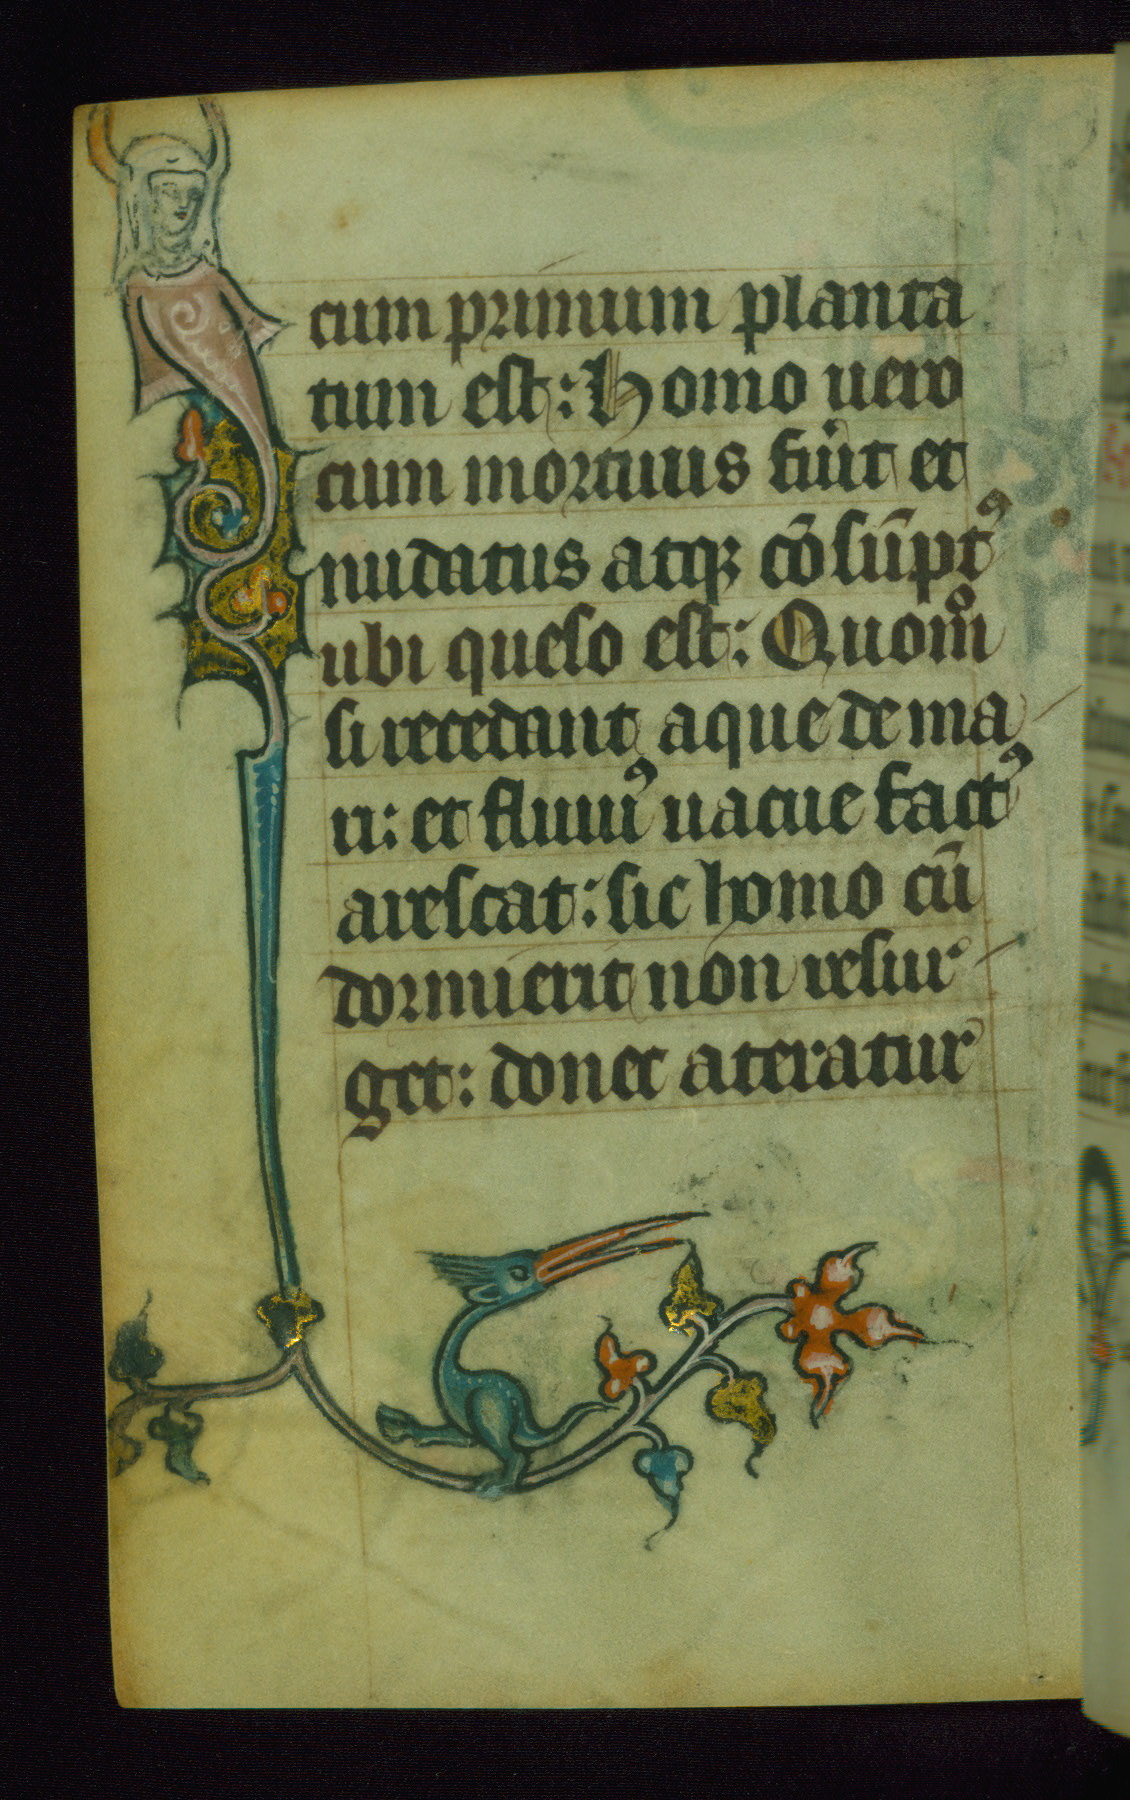 cum primum planta
tum est: Homo uero
cum mortuus fu͛it et
nudatus atqꝫ cōsūptꝰ
ubi queso est: Quomͦ
si recedant aque de ma
ri: et fluuiꝰ uacue factꝰ
arescat: sic homo cū
dormierit non resur
get: donec ateratur